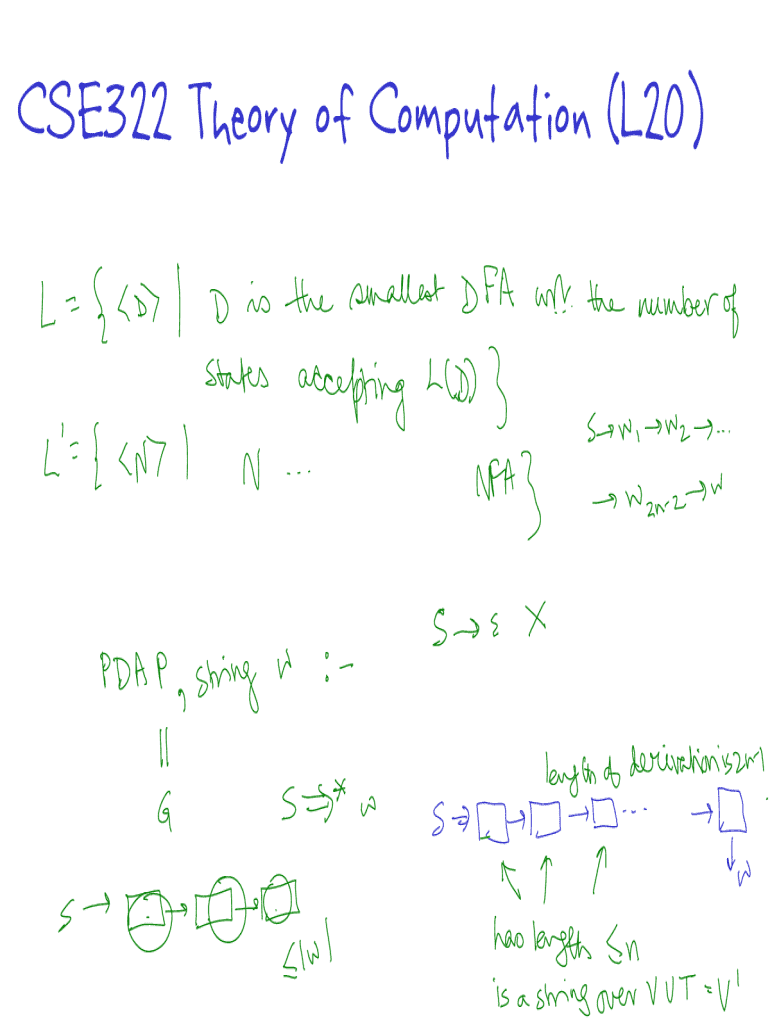 CSE322 Theory of Computation (L20)
L = { <D> | D is the smallest DFA wrt. the number of
states accepting L(D) }
L' = { <N> | N ... NFA }
S → W₁ → W₂ → ...
→ W₂ₙ₋₂ → W
S → ε X
PDA P, string w :-
||
G
S ⇒* w
length of derivation is 2n-1
S ⇒ □ → □ → □ ... → □
↓ w
S → □ → □ → □
≤ |w|
has length ≤ n
is a string over V U T = V'